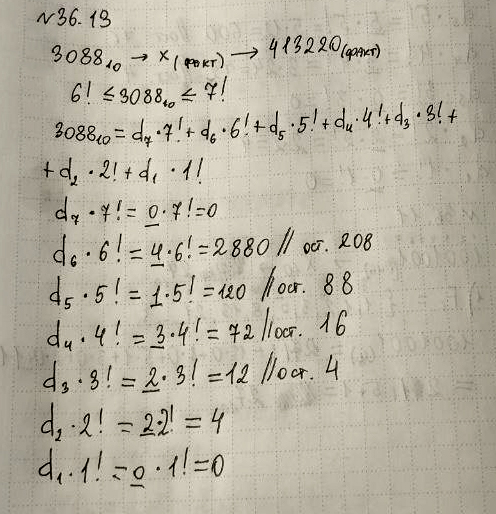 №36.13
3088₁₀ → x(факт) → 413220(факт)
6! ≤ 3088₁₀ ≤ 7!
3088₁₀ = d₇·7! + d₆·6! + d₅·5! + d₄·4! + d₃·3! +
+ d₂·2! + d₁·1!
d₇·7! = 0·7! = 0
d₆·6! = 4·6! = 2880 // ост. 208
d₅·5! = 1·5! = 120 // ост. 88
d₄·4! = 3·4! = 72 // ост. 16
d₃·3! = 2·3! = 12 // ост. 4
d₂·2! = 2·2! = 4
d₁·1! = 0·1! = 0